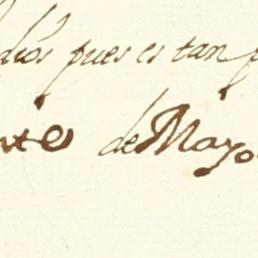 dios pues es tan
de Mayo